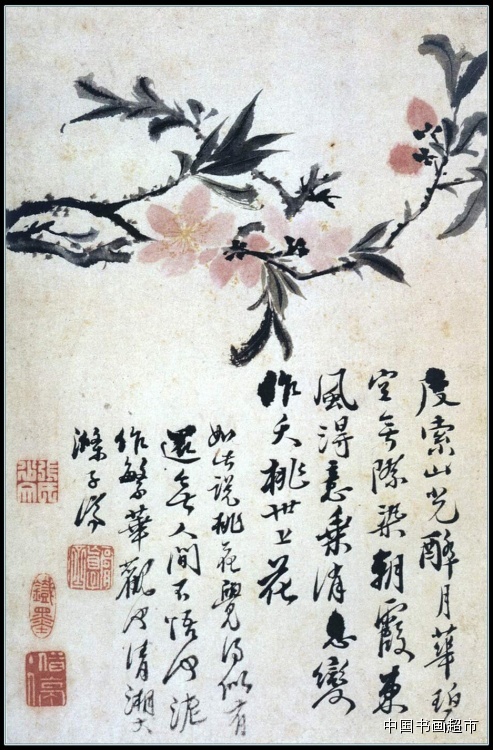 度索山光醉月華碧
空無際染朝霞東
風得意乘消息變
作夭桃世上花
如此說桃花覺得似有
還無人間不悟何泥
作繁華觀也清湘大
滌子濟
中国书画超市